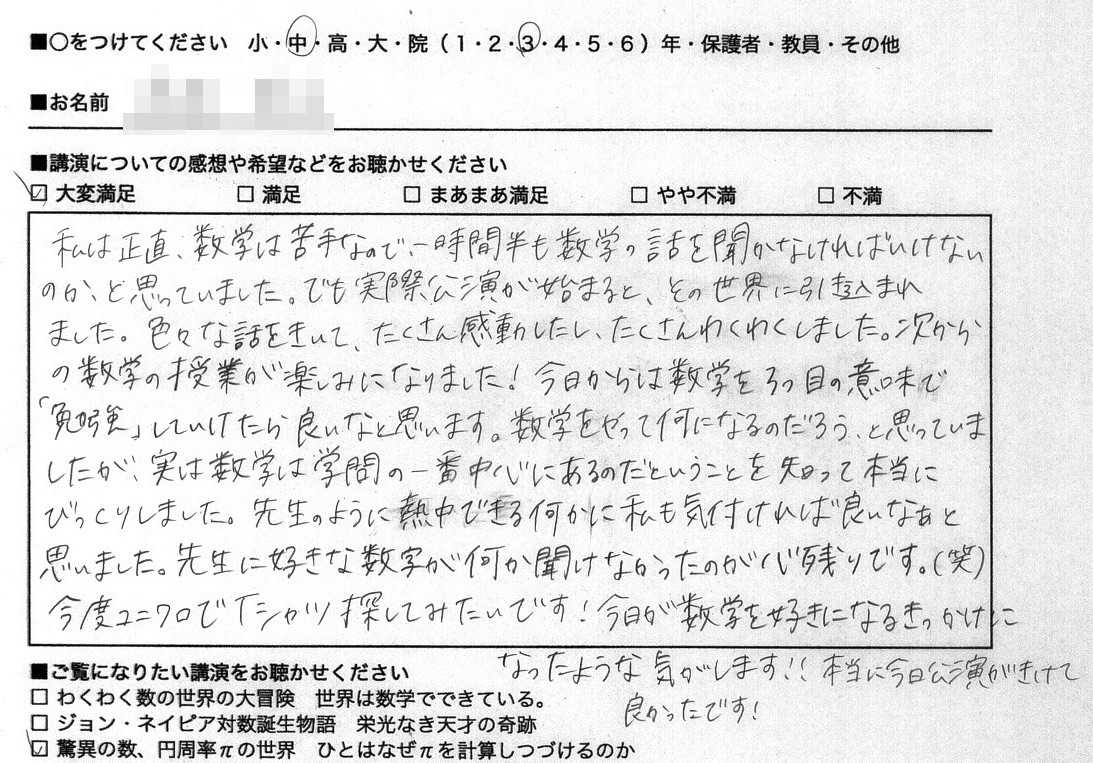 ■○をつけてください 小・中・高・大・院（1・2・3・4・5・6）年・保護者・教員・その他
■お名前
■講演についての感想や希望などをお聴かせください
☑ 大変満足 □ 満足 □ まあまあ満足 □ やや不満 □ 不満
私は正直、数学は苦手なので、一時間半も数学の話を聞かなければいけない
のか、と思っていました。でも実際公演が始まると、その世界に引き込まれ
ました。色々な話をきいて、たくさん感動したし、たくさんわくわくしました。次から
の数学の授業が楽しみになりました！今日からは数学を3つ目の意味で
「勉強」していけたら良いなと思います。数学をやって何になるのだろう、と思っていま
したが、実は数学は学問の一番中心にあるのだということを知って本当に
びっくりしました。先生のように熱中できる何かに私も気付ければ良いなぁと
思いました。先生に好きな数字が何か聞けなかったのが心残りです。(笑)
今度ユニクロでTシャツ探してみたいです！今日が数学を好きになるきっかけに
なったような気がします!!本当に今日公演がきけて
良かったです！
■ご覧になりたい講演をお聴かせください
□ わくわく数の世界の大冒険 世界は数学でできている。
□ ジョン・ネイピア対数誕生物語 栄光なき天才の奇跡
☑ 驚異の数、円周率πの世界 ひとはなぜπを計算しつづけるのか